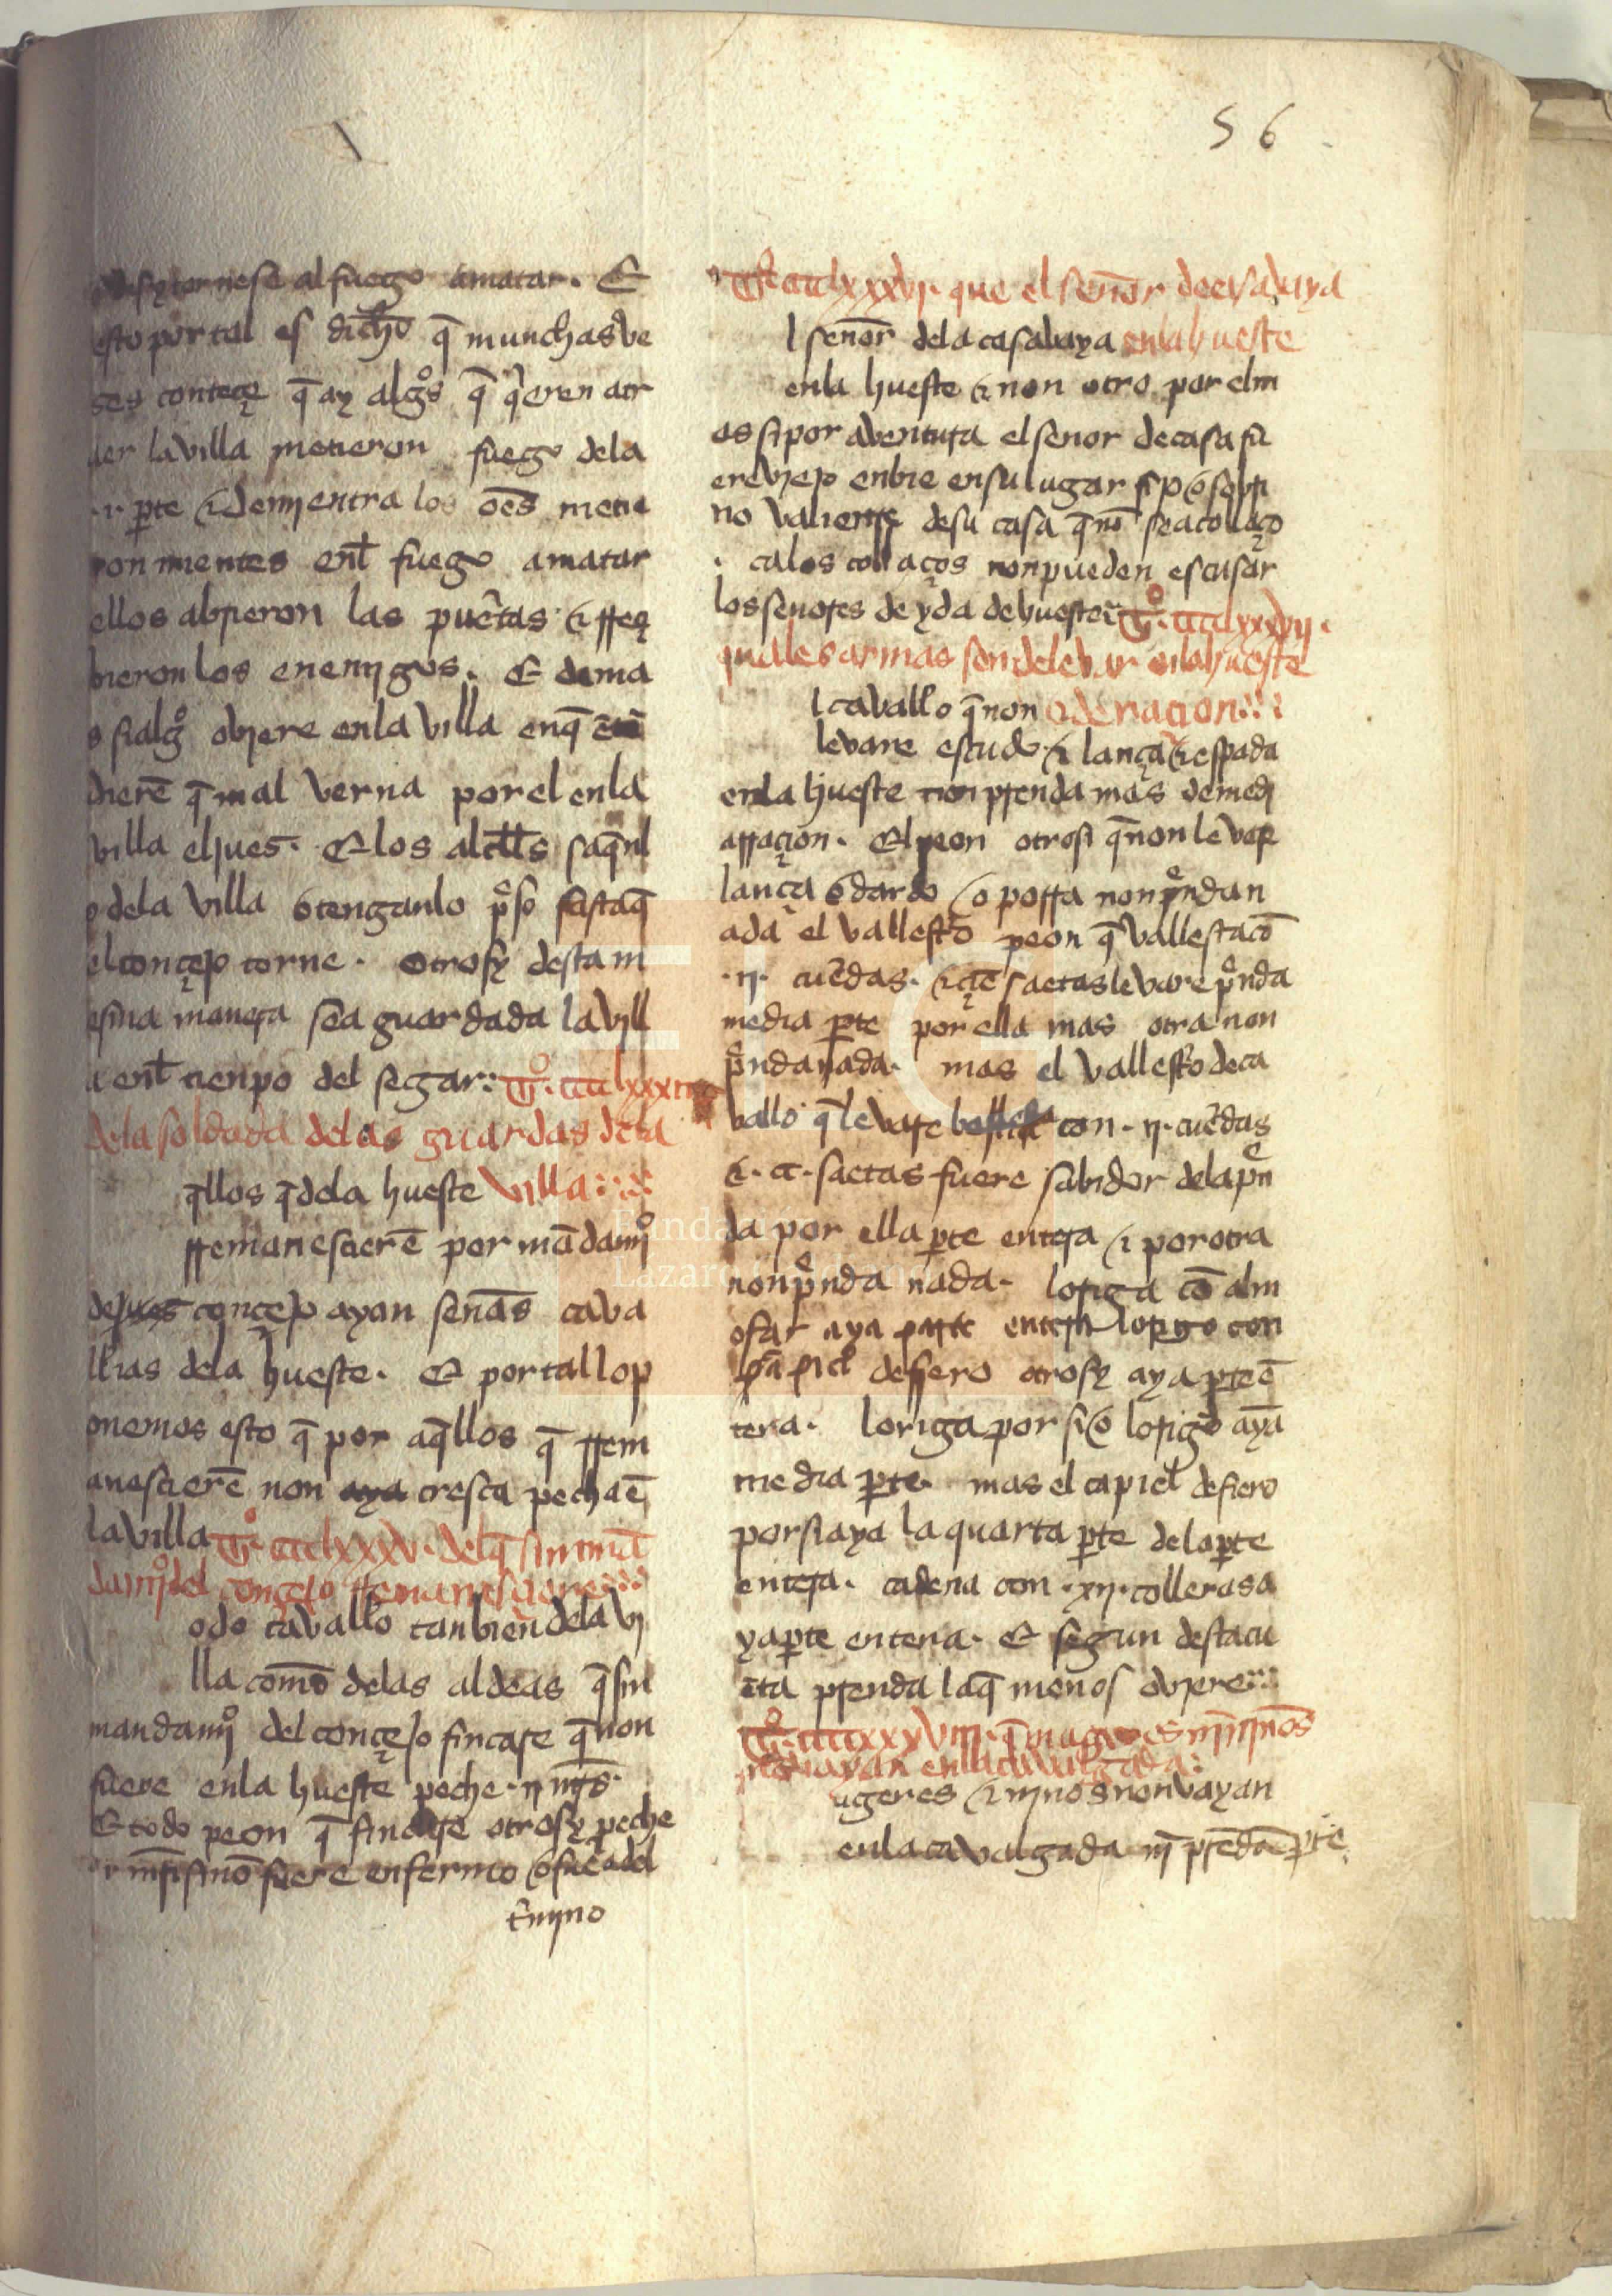 56
desy tornese al fuego amatar. E
esto por tal es dicho q̄ munchas ve
ses conteçe q̄ ay algᵒs q̄ q̄eren atr
aer la villa metieron fuego dela
.i. ꝑte ⁊ demjentra los oēs metie
ron mientes enl fuego amatar
ellos abrieron las puertas ⁊ rreç
bieron los enemjgos. E dema
s si algᵒ objere enla villa enq̄
dierē q̄ mal verna por el enla
villa el jues. E los alcłłs saq̄nl
o dela villa o tenganlo p̄so fasta q̄
el conçejo torne. otrosy desta m
esma manera sea guardada la vill
a enl tienpo del segar: Tº. ccclxxx
dela soldada delas guardas dela
q̄llos q̄ dela hueste villa
rremanesçierē por mādamjº
de jues conçejo ayan senas cava
llrias dela hueste. E por tal lo p
onemos esto q̄ por aq̄llos q̄ rrem
anesçierē non aya cresca pecha ē
la villa Tº. ccclxxxv. del q̄ sin mā
damjº del conçejo rremanesçiere
odo cavallᵒ tanbien dela vi
lla comō delas aldeas q̄ sin
mandamjº del conçejo fincare q̄ non
fuere enla hueste peche .ij. mr̄s.
E todo peon q̄ fincare otrosy peche
.i. mr̄ si nō fuere enfermo o fuera del
t̄mjno
Tº ccclxxxvi. que el señor de casa vaya
l señor dela casa vaya enla hueste
enla hueste ⁊ non otro por el m
as si por aventura el senor de casa fu
ere viejo enbie en su lugar fijo o sobri
no valiente de su casa q̄ nō sea collaço
. ca los collaços non pueden escusar
los senores de yda de hueste Tº. ccclxxxvij.
quales armas son de levar enla hueste
l cavallᵒ q̄ non o de raçion
levare escudo ⁊ lança ⁊ espada
enla hueste non prenda mas de medi
a rraçion. El peon otrosi q̄ non levar
lança o dardo o porra non p̄nda n
ada el vallestᵒ peon q̄ vallesta cō
.ij. cuerdas. ⁊ çiē saetas levare p̄nda
media ꝑte por ella mas otra non
p̄nda nada. mas el vallestᵒ de ca
vallo q̄ levare ballesta con .ij. cuerdas
⁊ .c. saetas fuere sabidor dela p̄n
da por ella ꝑte entera ⁊ por otra
non p̄nda nada. loriga cō alm
ofar aya parte entera lorigo con
de fierro otrosy aya ꝑte ē
tera. loriga por si o lorigo aya
media ꝑte. mas el capiel de fiero
por si aya la quarta ꝑte dela ꝑte
entera. cadena con .xij. colleras a
ya ꝑte entera. E segun desta cu
ēta prenda la q̄ menos objere
Tº. ccclxxxviij. q̄ mugeres nj njnos
nō vayan enla cavalgada:
ugeres ⁊ njnos non vayan
enla cavalgada nj prēdā ꝑte